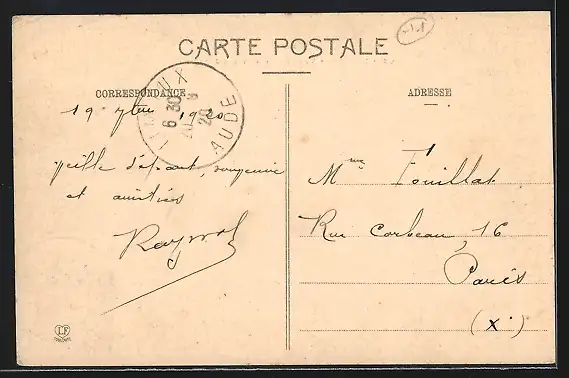 CARTE POSTALE
CORRESPONDANCE
ADRESSE
UX
6 30
20
AUDE
19 7bre 1920
veille départ, souvenir
et amitiés
Raymond
Mme Fouillat
Rue Corbeau, 16
Paris
(X.)
LF